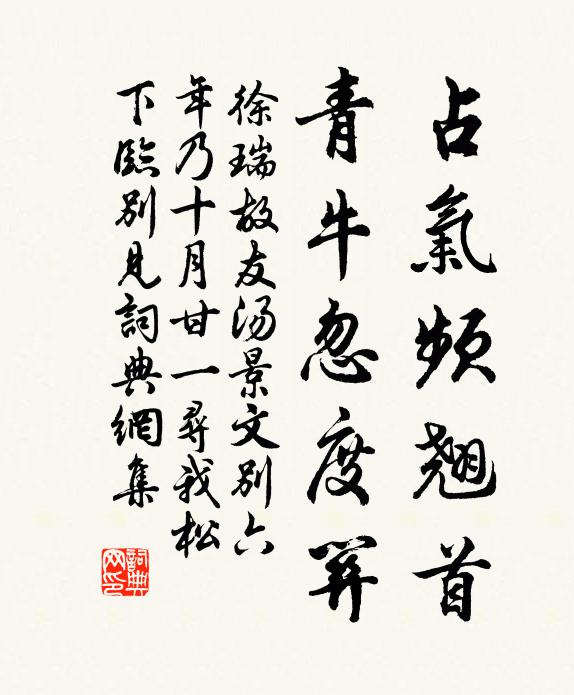 占氣頻翹首
青牛忽度關
徐瑞故友湯景文別六
年乃十月廿一尋我松
下臨別見詞典網集
詞典
网印